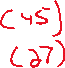 (45)
(27)